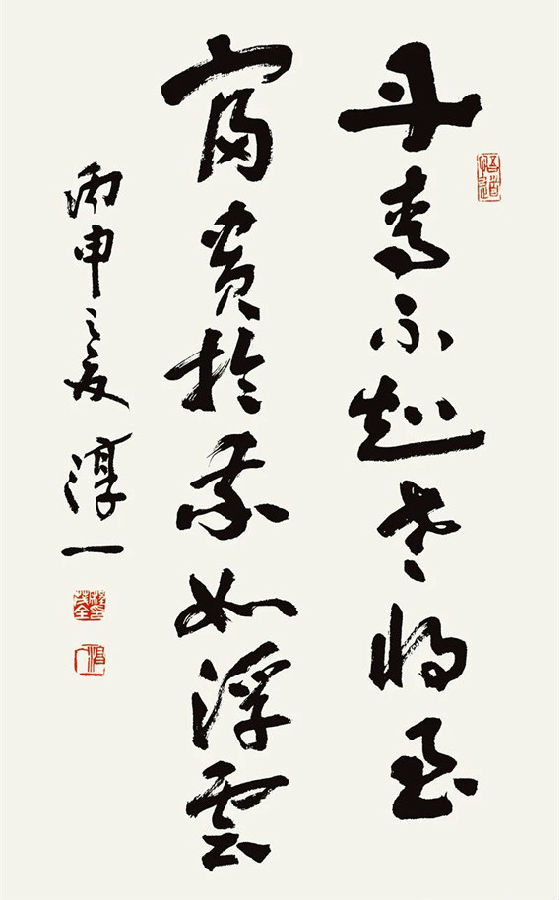 丹青不知老將至
富貴於我如浮雲
丙申之夏 淳一